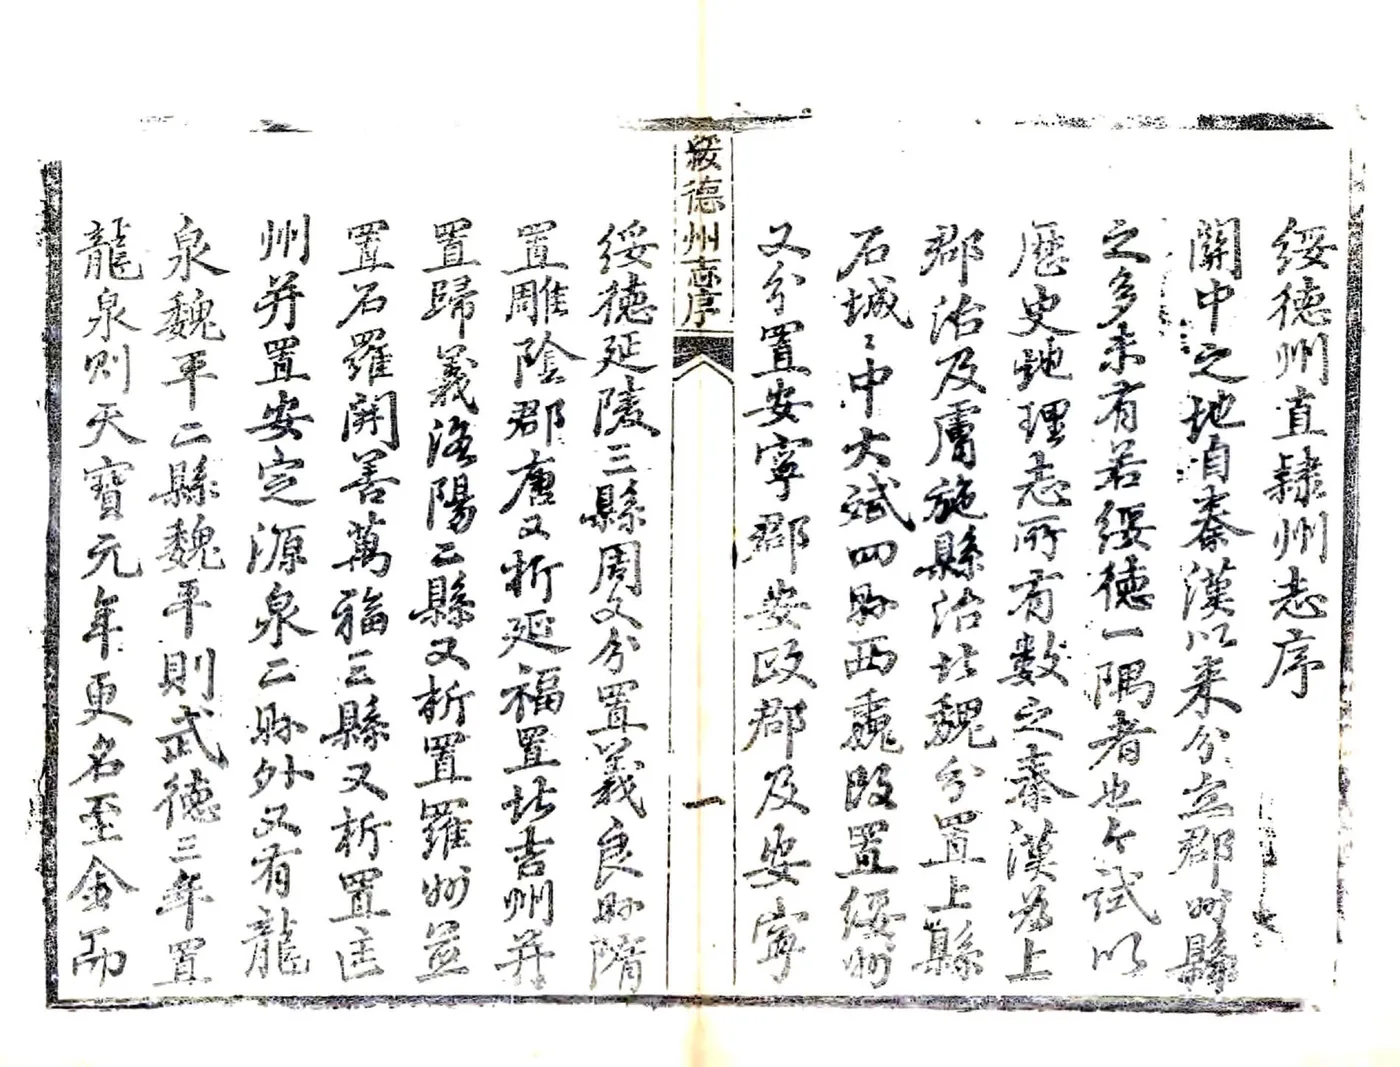 綏德州直隸州志序
關中之地自秦漢以来分立郡州縣
之多未有若綏德一隅者也今試以
歴史地理志所有數之秦漢爲上
郡治及膚施縣治北魏分置上縣
石城〻中大斌四縣西魏改置綏州
又分置安寧郡安政郡及安寧
綏德州志序
一
綏德延陵三縣周又分置義良縣隋
置雕陰郡唐又析延福置北吉州并
置歸義洛陽二縣又析置羅州並
置石羅開善萬福三縣又析置匡
州并置安定源泉二縣外又有龍
泉魏平二縣魏平則武德三年置
龍泉則天寶元年更名至金而